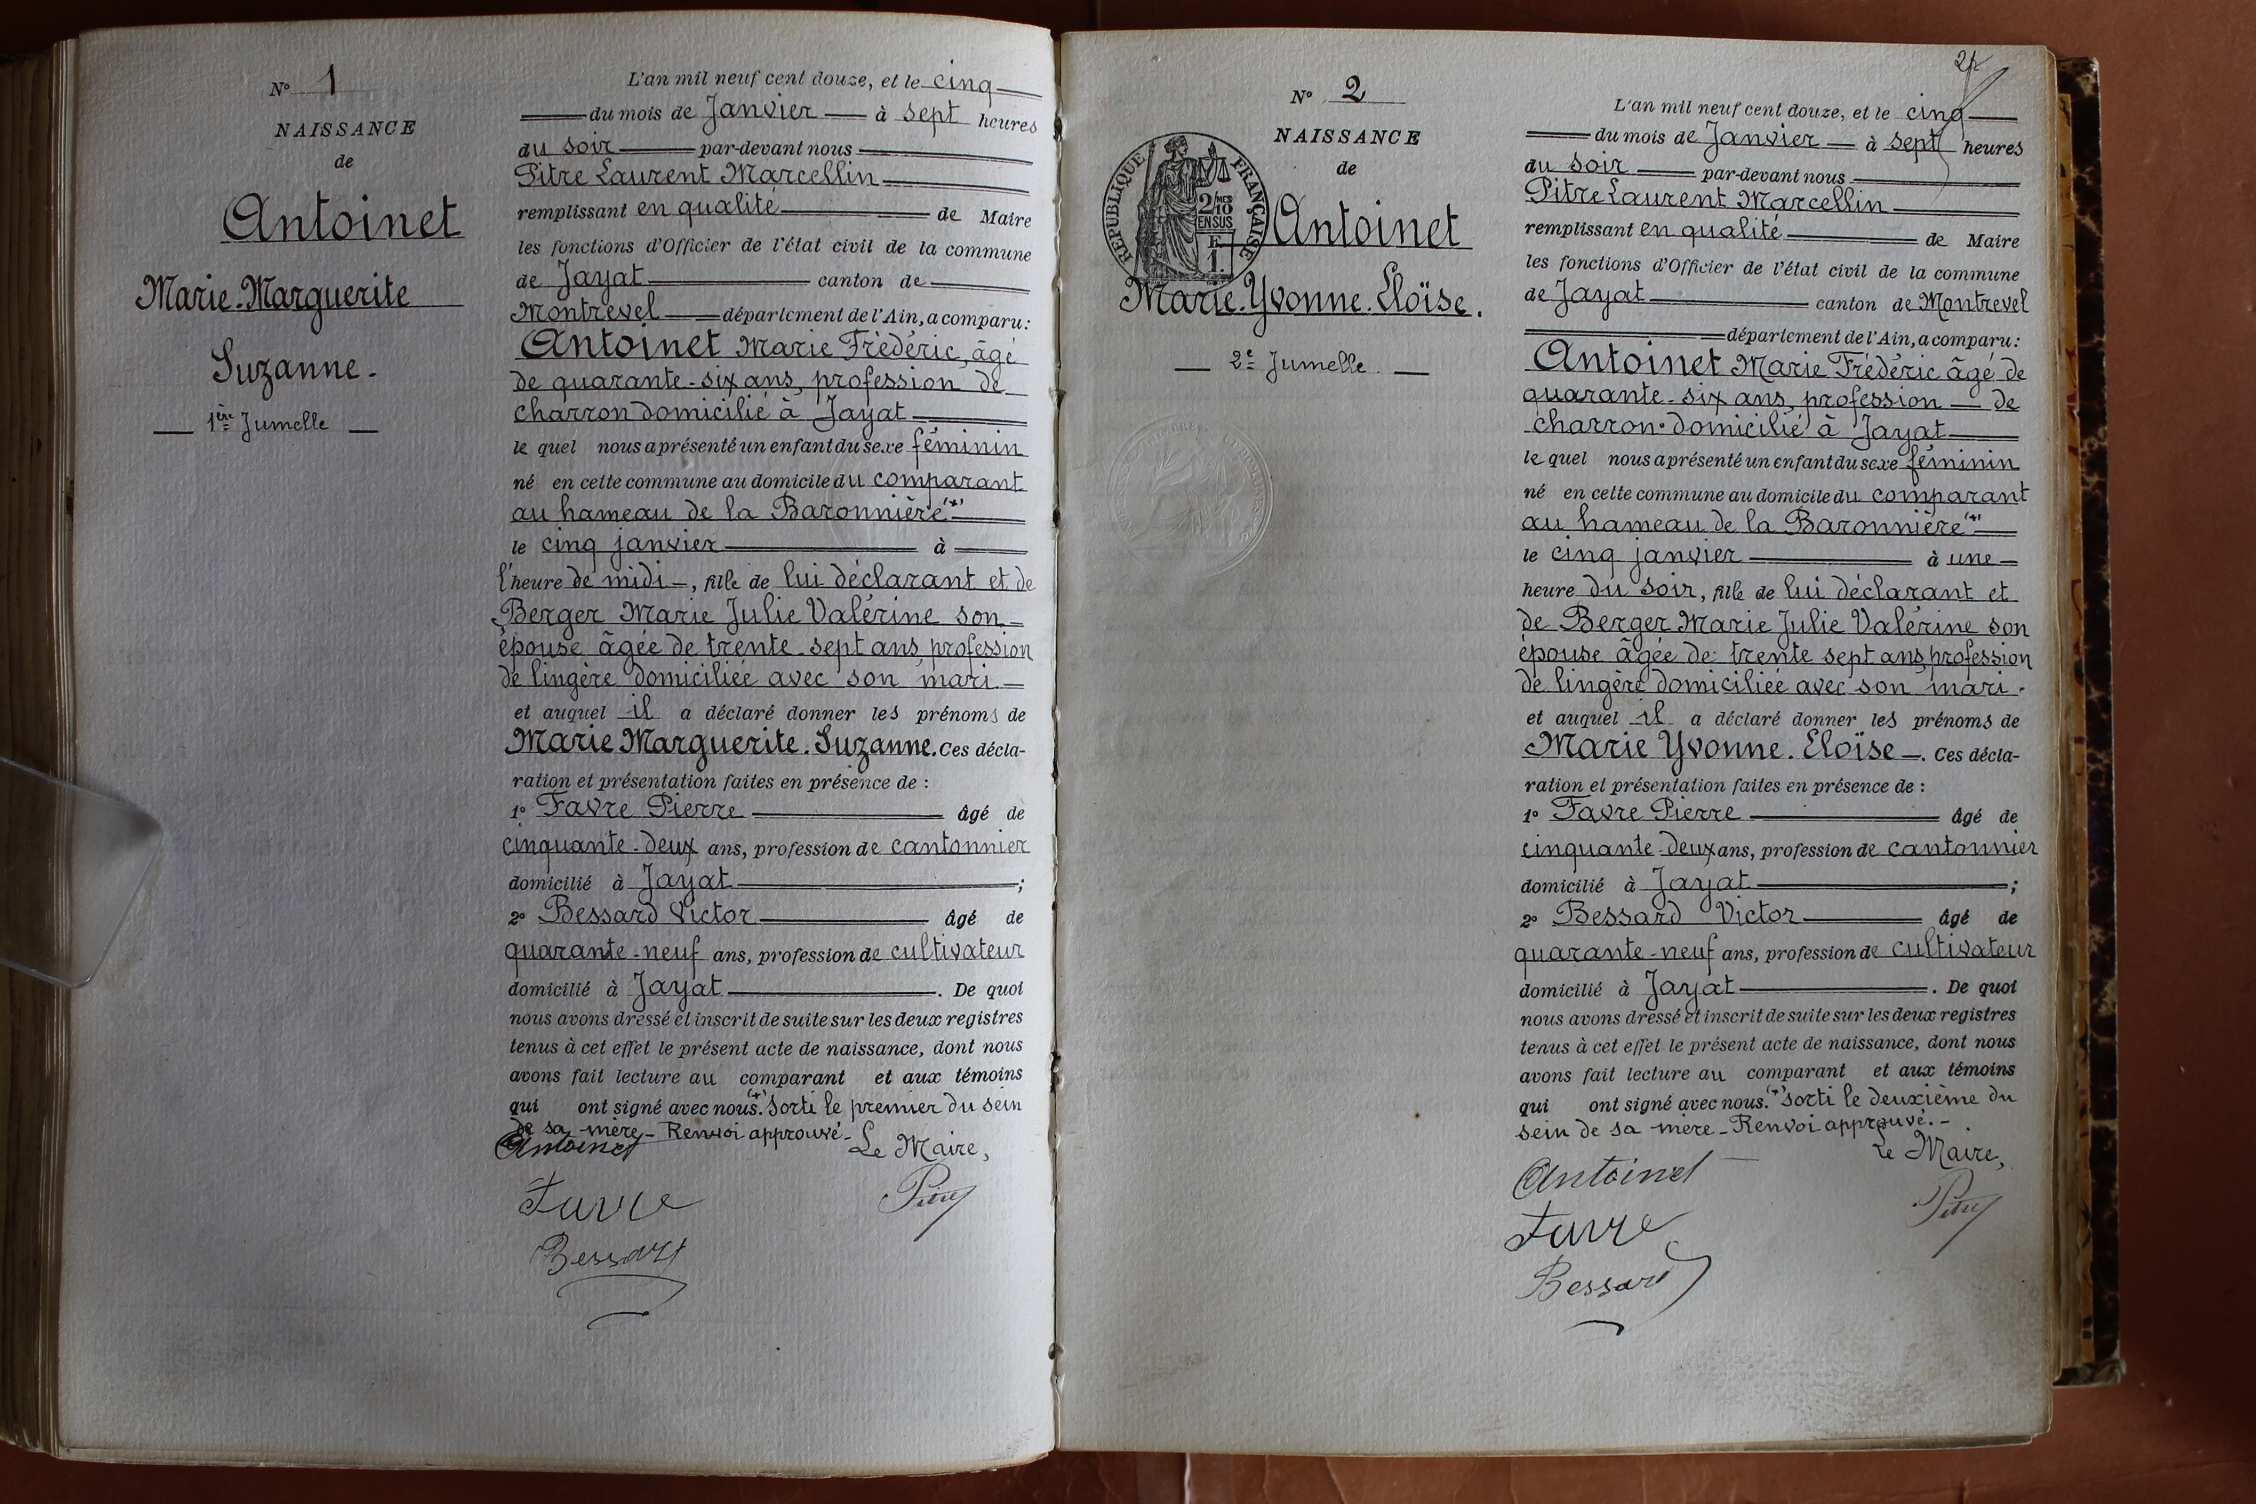 N° 1
NAISSANCE
de
Antoinet
Marie-Marguerite
Suzanne.
1ère Jumelle
L'an mil neuf cent douze, et le cinq
du mois de Janvier à sept heures
du soir par-devant nous
Pitre Laurent Marcellin
remplissant en qualité de Maire
les fonctions d'Officier de l'état civil de la commune
de Jayat canton de
Montrevel département de l'Ain, a comparu :
Antoinet Marie Frédéric, âgé
de quarante-six ans, profession de
charron domicilié à Jayat
le quel nous a présenté un enfant du sexe féminin
né en cette commune au domicile du comparant
au hameau de la Baronnière (+)
le cinq janvier à
l'heure de midi, fille de lui déclarant et de
Berger Marie Julie Valérine son
épouse âgée de trente-sept ans, profession
de lingère domiciliée avec son mari.
et auquel il a déclaré donner les prénoms de
Marie Marguerite. Suzanne. Ces décla-
ration et présentation faites en présence de :
1° Favre Pierre âgé de
cinquante-deux ans, profession de cantonnier
domicilié à Jayat ;
2° Bessard Victor âgé de
quarante-neuf ans, profession de cultivateur
domicilié à Jayat . De quoi
nous avons dressé et inscrit de suite sur les deux registres
tenus à cet effet le présent acte de naissance, dont nous
avons fait lecture au comparant et aux témoins
qui ont signé avec nous. (+) Sorti le premier du sein
de sa mère - Renvoi approuvé -
Antoinet Le Maire,
Favre Pitre
Bessard
2
N° 2
NAISSANCE
de
RÉPUBLIQUE FRANÇAISE
2/10 MES
EN SUS
F.
1.
Antoinet
Marie. Yvonne. Eloïse.
2e Jumelle.
L'an mil neuf cent douze, et le cinq
du mois de Janvier à sept heures
du soir par-devant nous
Pitre Laurent Marcellin
remplissant en qualité de Maire
les fonctions d'Officier de l'état civil de la commune
de Jayat canton de Montrevel
département de l'Ain, a comparu :
Antoinet Marie Frédéric âgé de
quarante-six ans, profession de
charron domicilié à Jayat
le quel nous a présenté un enfant du sexe féminin
né en cette commune au domicile du comparant
au hameau de la Baronnière (+)
le cinq janvier à une
heure du soir, fille de lui déclarant et
de Berger Marie Julie Valérine son
épouse âgée de trente sept ans, profession
de lingère domiciliée avec son mari.
et auquel il a déclaré donner les prénoms de
Marie Yvonne. Eloïse. Ces décla-
ration et présentation faites en présence de :
1° Favre Pierre âgé de
cinquante-deux ans, profession de cantonnier
domicilié à Jayat ;
2° Bessard Victor âgé de
quarante-neuf ans, profession de cultivateur
domicilié à Jayat . De quoi
nous avons dressé et inscrit de suite sur les deux registres
tenus à cet effet le présent acte de naissance, dont nous
avons fait lecture au comparant et aux témoins
qui ont signé avec nous. (+) Sorti le deuxième du
sein de sa mère - Renvoi approuvé. -
Le Maire,
Antoinet
Favre Pitre
Bessard